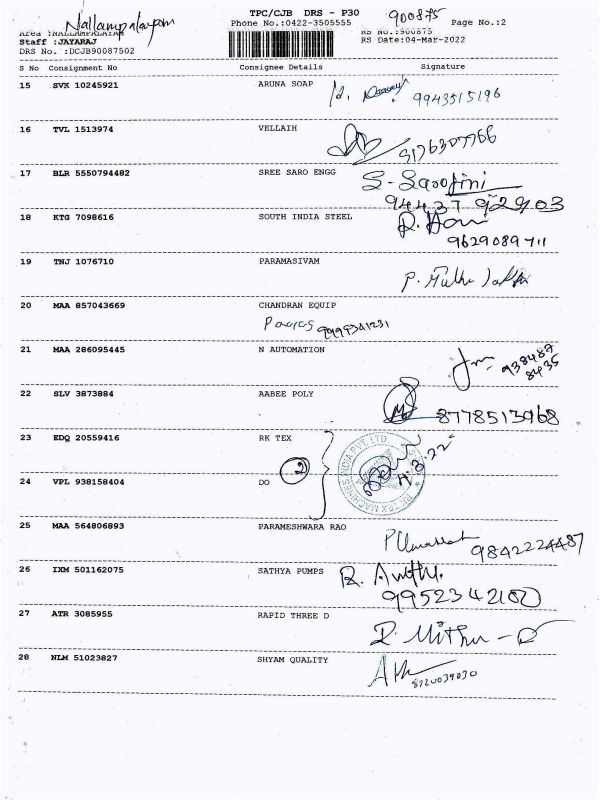 TPC/CJB DRS - P30
Nallampalayam
900875
Phone No.:0422-3505555
Page No.:2
Area :NALLAMPALAYAM
RS No.:900875
Staff :JAYARAJ
RS Date:04-Mar-2022
DRS No. :DCJB90087502
S No Consignment No Consignee Details Signature
15 SVK 10245921 ARUNA SOAP
9943515196
16 TVL 1513974 VELLAIH
9176307766
17 BLR 5550794482 SREE SARO ENGG S-Sarojini
94437 92903
18 KTG 7098616 SOUTH INDIA STEEL
9629089711
19 TNJ 1076710 PARAMASIVAM
20 MAA 857043669 CHANDRAN EQUIP
21 MAA 286095445 N AUTOMATION
938487
8435
22 SLV 3873884 AABEE POLY
8778513968
23 EDQ 20559416 RK TEX
24 VPL 938158404 DO 2
4.3.22
RK TEX MACHINES INDIA PVT LTD
25 MAA 564806893 PARAMESHWARA RAO
9842224487
26 IXM 501162075 SATHYA PUMPS
9952342100
27 ATR 3085955 RAPID THREE D
28 NLM 51023827 SHYAM QUALITY
8220039030